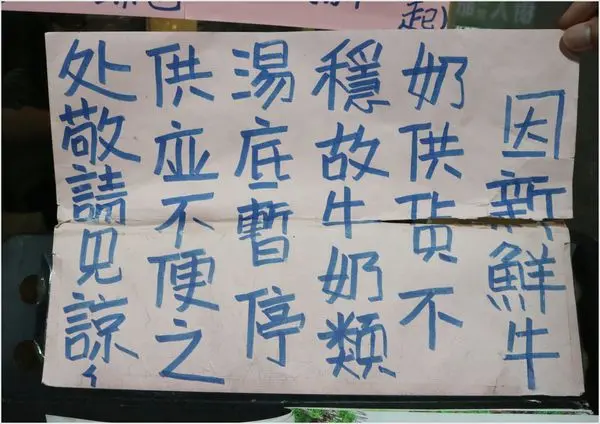 起)
因新鮮牛
奶供货不
穩故牛奶類
湯底暫停
供並不便之
处敬請见諒